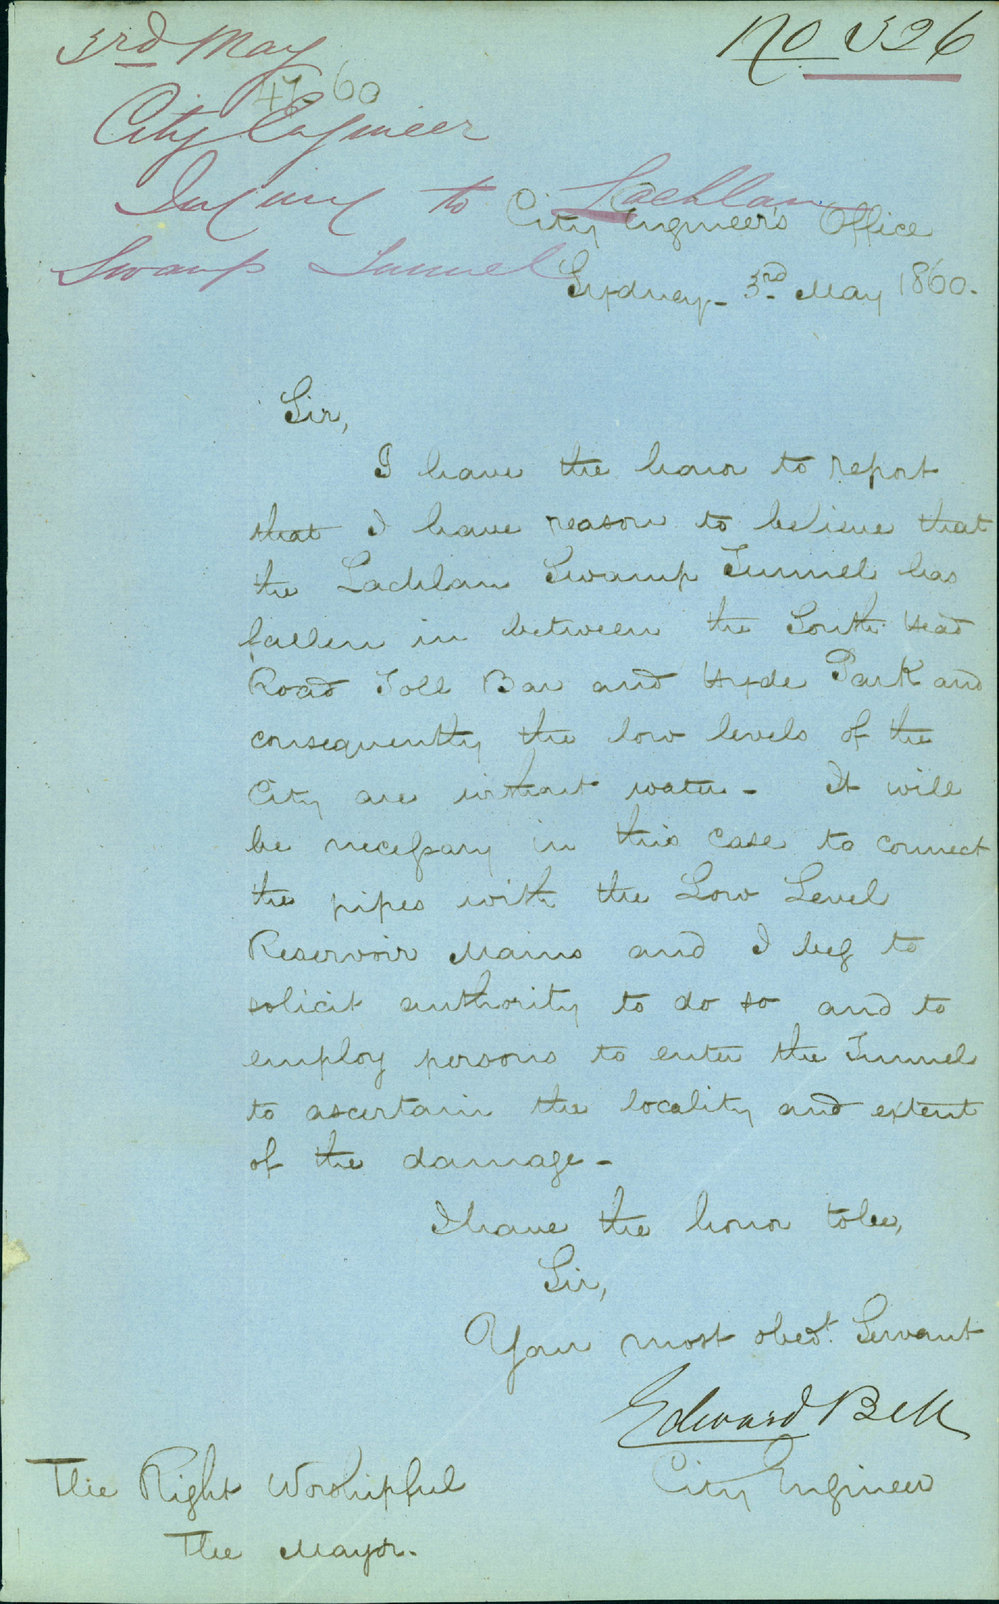 3rd May
No 326
60
City Engineer
Injury to Lachlan
Swamp Tunnel
City Engineer's Office
Sydney - 3rd May 1860.
Sir,
I have the honor to report
that I have reason to believe that
the Lachlan Swamp Tunnel has
fallen in between the South Head
Road Toll Bar and Hyde Park and
consequently the low levels of the
City are without water - It will
be necessary in this case to connect
the pipes with the Low Level
Reservoir Mains and I beg to
solicit authority to do so and to
employ persons to enter the Tunnel
to ascertain the locality and extent
of the damage -
I have the honor to be,
Sir,
Your most obedt. Servant
Edward Bell
City Engineer
The Right Worshipful
The Mayor.